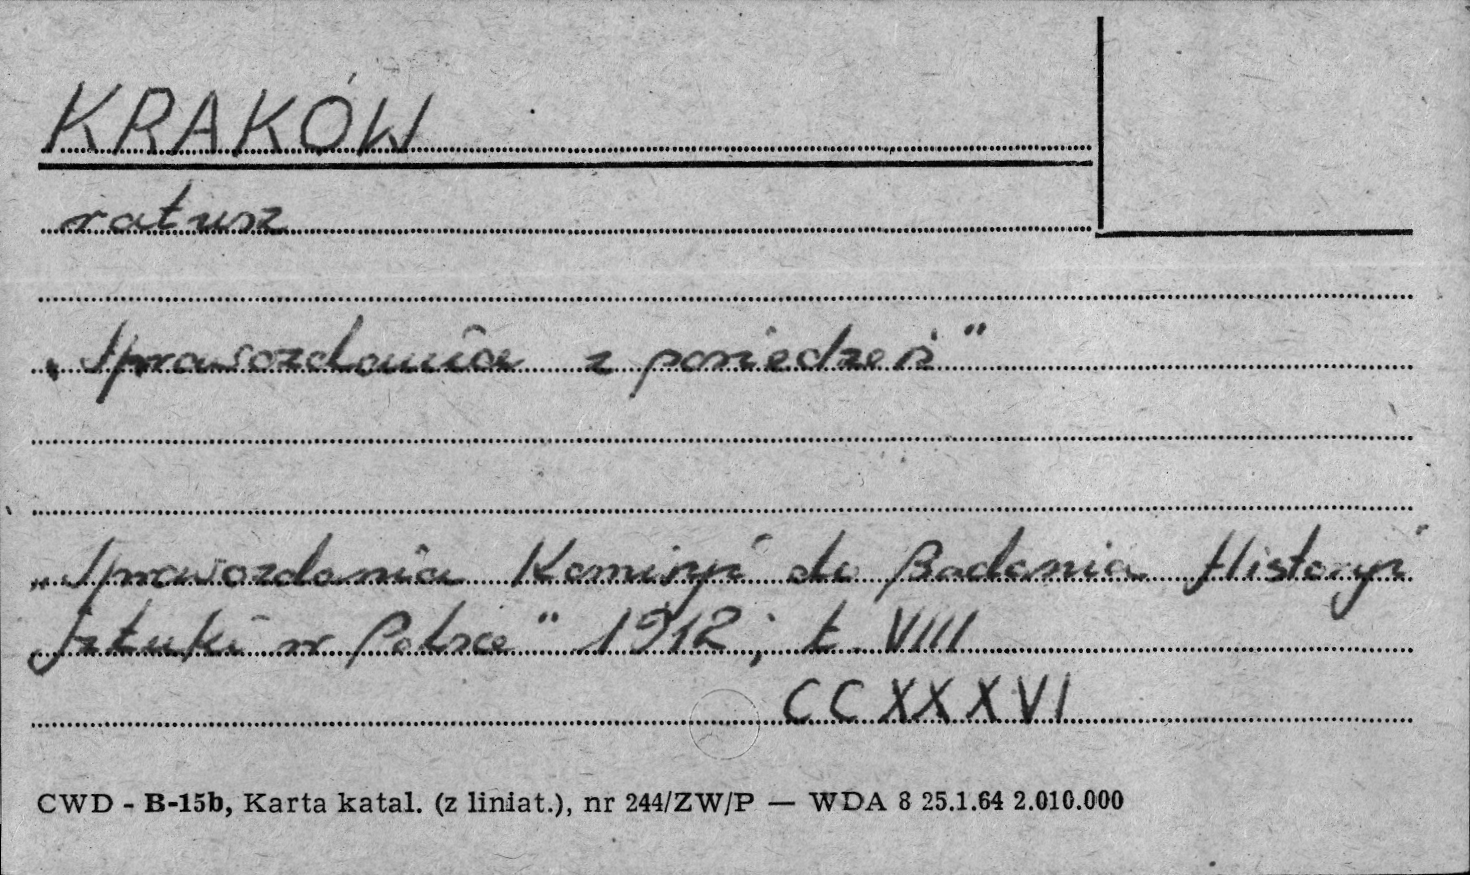 KRAKÓW
ratusz
„Sprawozdania z posiedzeń"
„Sprawozdania Komisyi do Badania Historyi
Sztuki w Polsce" 1912; t. VIII
CCXXXVI
CWD - B-15b, Karta katal. (z liniat.), nr 244/ZW/P — WDA 8 25.1.64 2.010.000